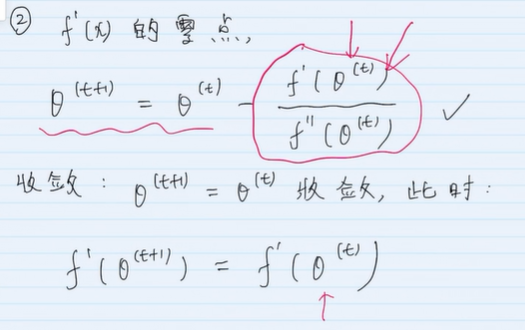 ② f'(x) 的零点,
θ^(t+1) = θ^(t) - f'(θ^(t)) / f''(θ^(t)) ✓
收敛: θ^(t+1) = θ^(t) 收敛, 此时:
f'(θ^(t+1)) = f'(θ^(t))